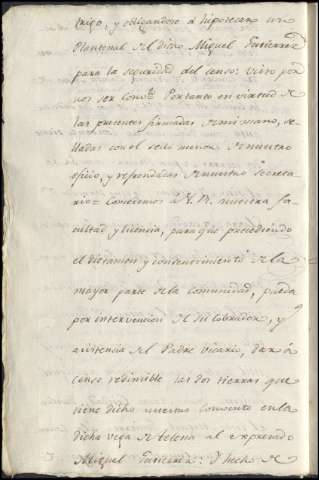 trigo, y obligandose á hipotecar un
Plantonal del dicho Miguel Gutierrez
para la seguridad del censo: visto por
nos ser Conste. Por tanto en virtud de
las presentes firmadas de mi mano, se-
lladas con el sello menor de nuestro
oficio, y refrendadas de nuestro Secreta-
rio = Concedemos á V. R. nuestra fa-
cultad y licencia, para que precediendo
el dictamen y consentimiento de la
mayor parte de la comunidad, pueda
por intervencion de su labrador, y
asistencia del Padre vicario, dar á
censo redimible las dos tierras que
tiene dicho nuestro Convento en la
dicha vega de telena al expresado
Miguel Gutierrez: I hecho